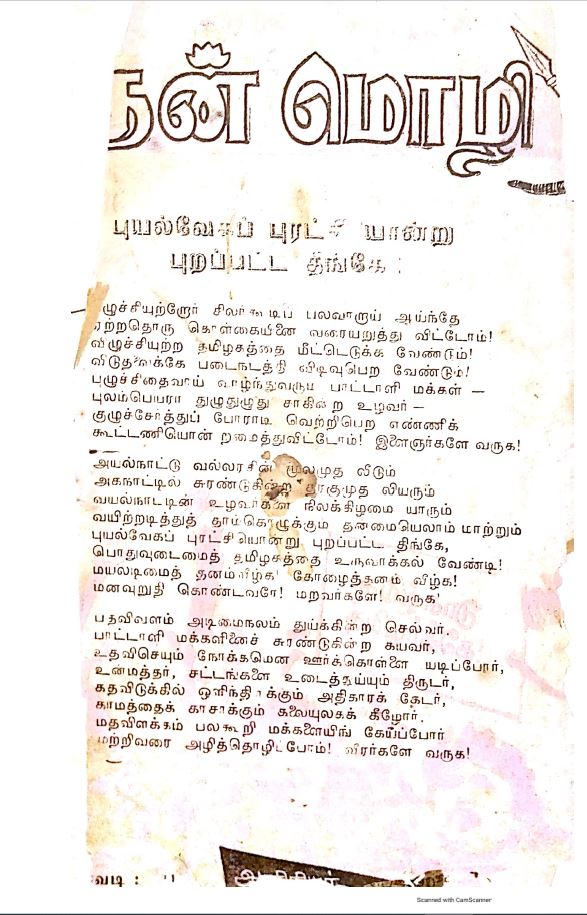 தன் மொழி
புயல்வேகப் புரட்சி யொன்று
புறப்பட்ட திங்கே!
சிலர் கூடிப் பலவாறாய் ஆய்ந்தே
ஏற்றதொரு கொள்கையினை வரையறுத்து விட்டோம்!
விழுச்சியுற்ற தமிழகத்தை மீட்டெடுக்க வேண்டும்!
விடுதலைக்கே படைநடத்தி விடிவுபெற வேண்டும்!
புழுச்சிதைவாய் வாழ்ந்துவரும் பாட்டாளி மக்கள் —
புலம்பெயரா துழுதுழுது சாகின்ற உழவர் —
குழுச்சேர்த்துப் போராடி வெற்றிபெற எண்ணிக்
கூட்டணியொன் றமைத்துவிட்டோம்! இளைஞர்களே வருக!
அயல்நாட்டு வல்லரசின் மூலமுத லிடும்
அகநாட்டில் சுரண்டுகின்ற தரகுமுத லியரும்
வயல்நாட்டின் உழவர்களை நிலக்கிழமை யாரும்
வயிற்றடித்துத் தாம்கொழுக்கும் தன்மையெலாம் மாற்றும்
புயல்வேகப் புரட்சியொன்று புறப்பட்ட திங்கே,
பொதுவுடைமைத் தமிழகத்தை உருவாக்கல் வேண்டி!
மயலடிமைத் தனம்வீழ்க! கோழைத்தனம் வீழ்க!
மனவுறுதி கொண்டவரே! மறவர்களே! வருக!
பதவிவளம் அடிமைநலம் துய்க்கின்ற செல்வர்.
பாட்டாளி மக்களினைச் சுரண்டுகின்ற கயவர்,
உதவிசெயும் நோக்கமென ஊர்க்கொள்ளை யடிப்போர்,
உன்மத்தர், சட்டங்களை உடைத்துய்யும் திருடர்,
கதவிடுக்கில் ஒளிந்திருக்கும் அதிகாரக் கேடர்,
காமத்தைக் காசாக்கும் கலையுலகக் கீழோர்.
மதவிளக்கம் பலகூறி மக்களையிங் கேய்ப்போர்
மற்றிவரை அழித்தொழிப்போம்! வீரர்களே வருக!
Scanned with CamScanner